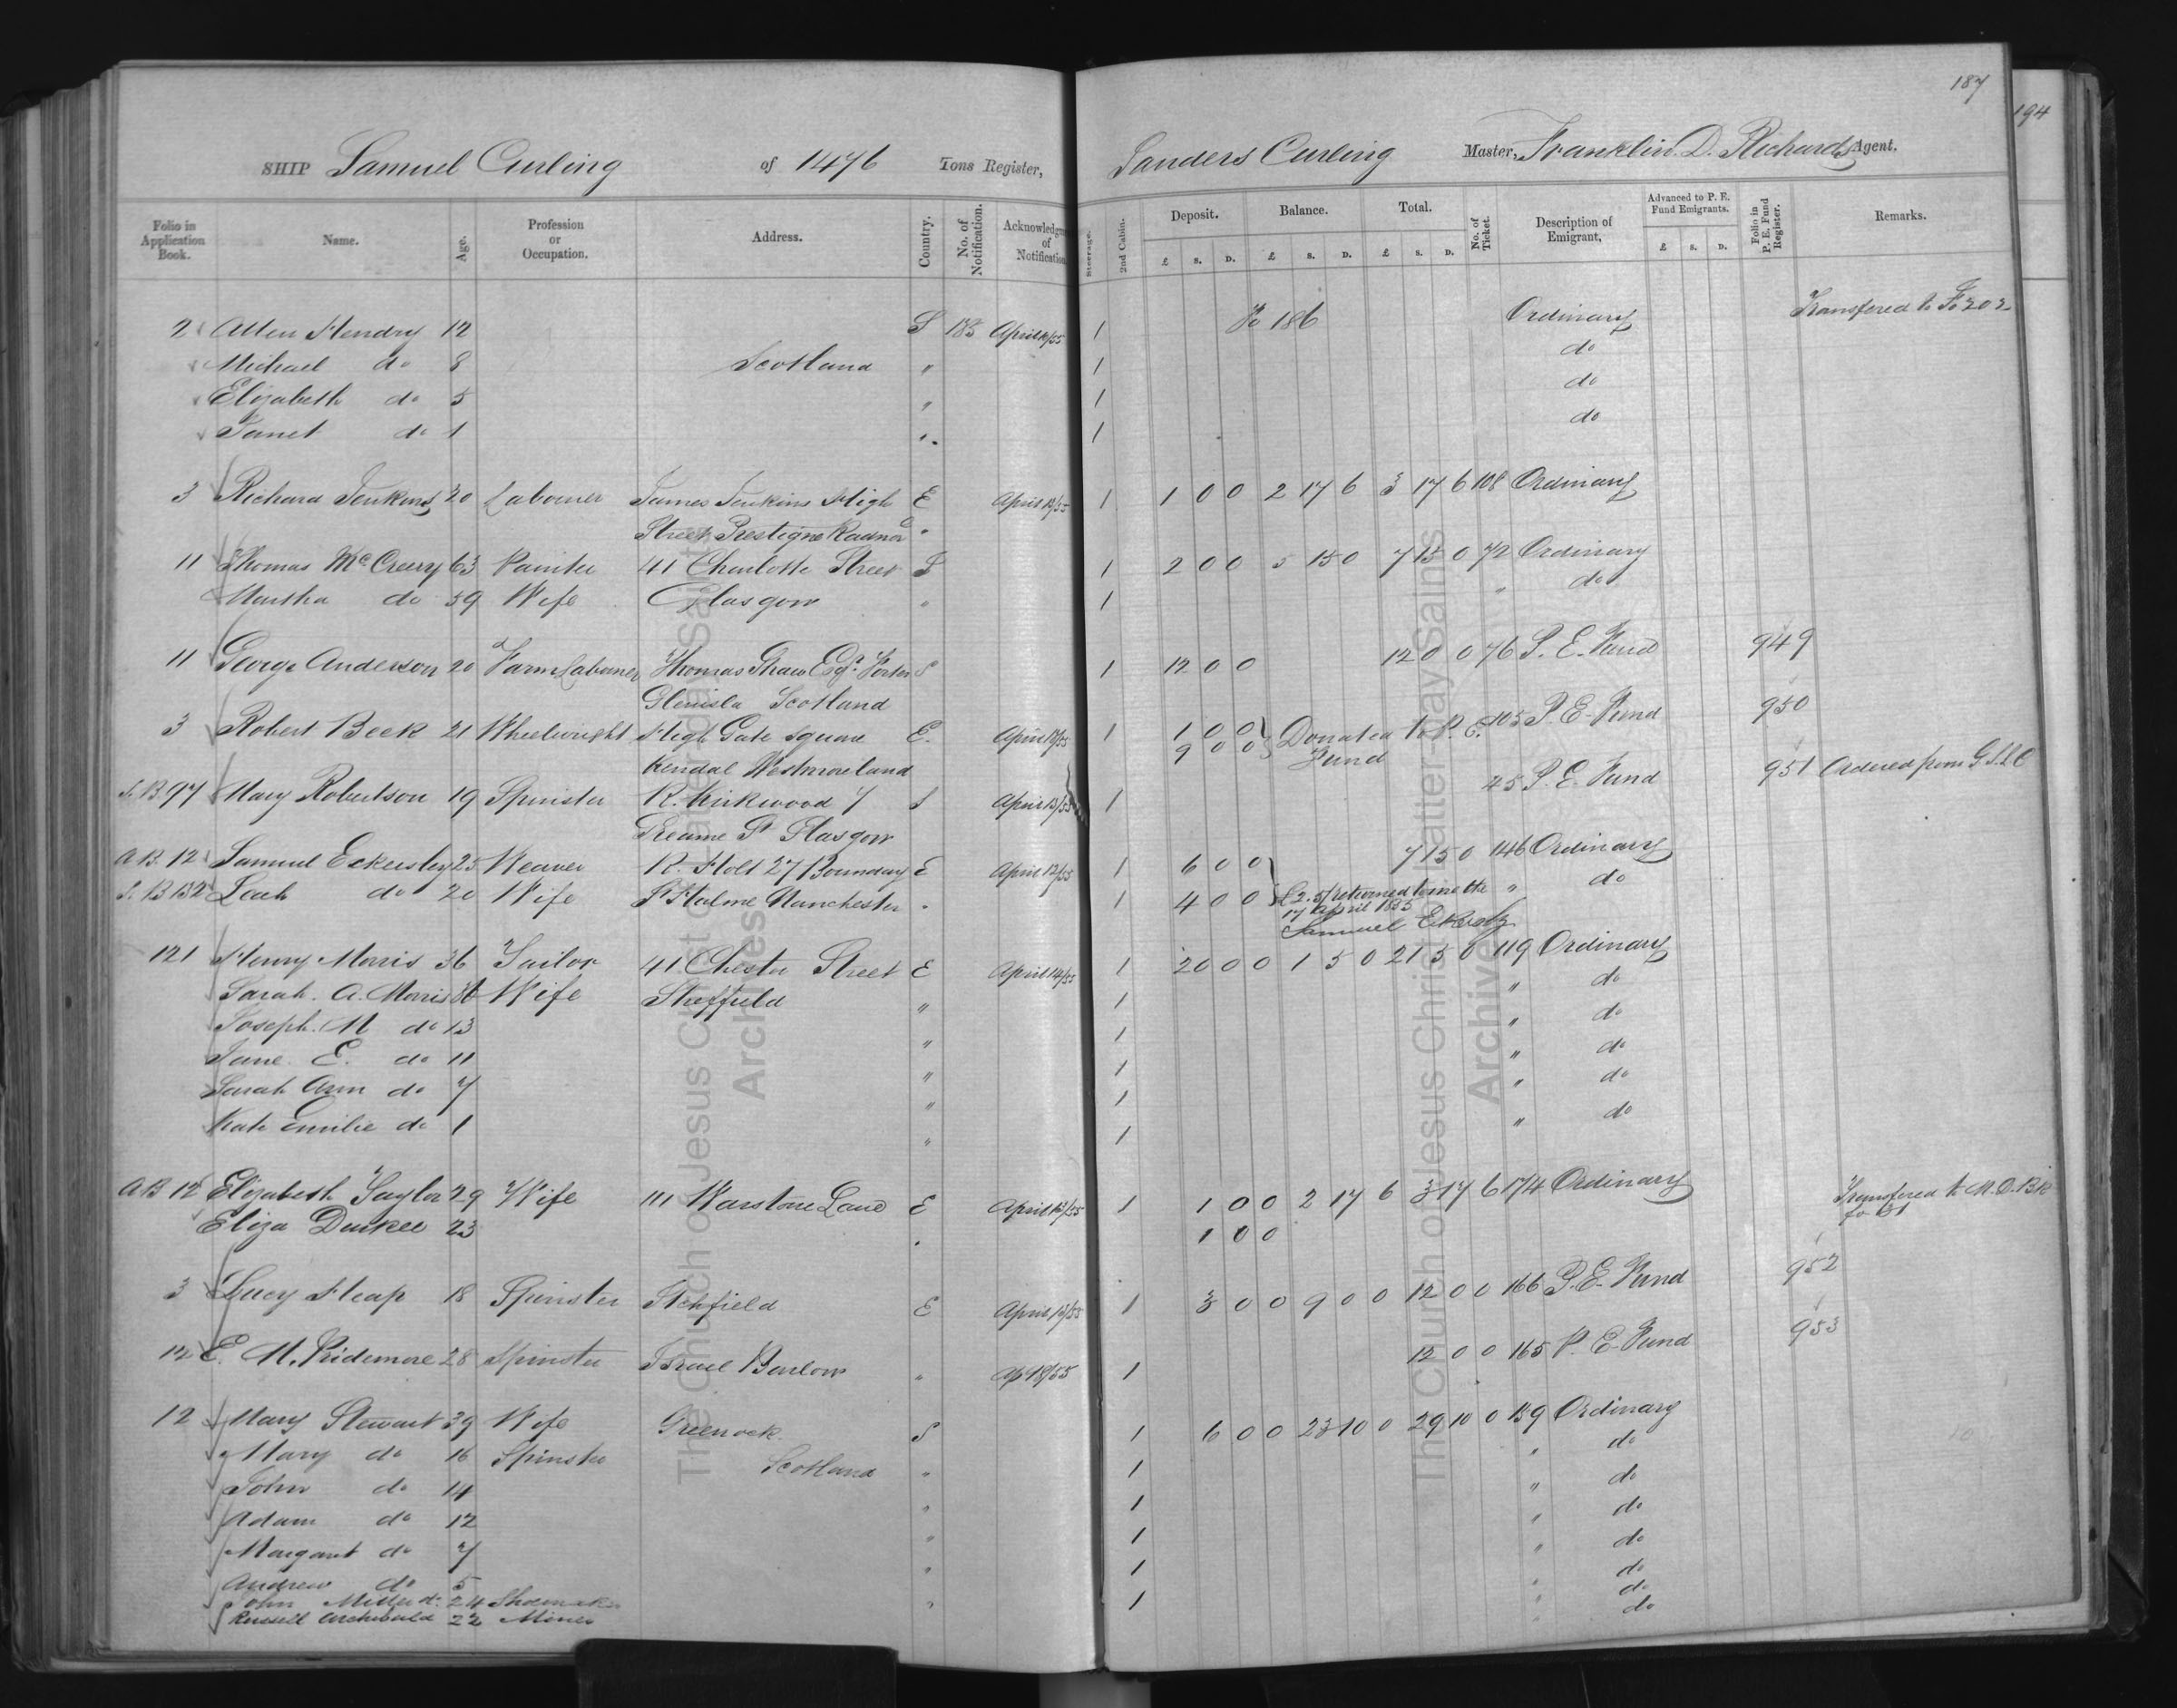 187
194
SHIP Samuel Curling of 1476 Tons Register, Sanders Curling Master, Franklin. D. Richards Agent.
Folio in Application Book. Name. Age. Profession or Occupation. Address. Country. No. of Notification. Acknowledgm of Notification Steerage. 2nd Cabin. Deposit. £ s. D. Balance. £ s. D. Total. £ s. D. No. of Ticket. Description of Emigrant, Advanced to P. E. Fund Emigrants. £ s. D. Folio in P. E. Fund Register. Remarks.
2 Allen Hendry 12 S 183 April /55 1 Fo 186 Ordinary Transfered to Fo 202
Michael do 8 Scotland " 1 do
Elizabeth do 5 " 1 do
Janet do 1 " 1 do
3 Richard Jenkins 20 Laborer James Jenkins High E April 13/55 1 1 0 0 2 17 6 3 17 6 108 Ordinary
Street Prestigne Radnor "
11 Thomas McCreery 63 Painter 41 Charlotte Street S 1 2 0 0 5 15 0 7 15 0 72 Ordinary
Martha do 59 Wife Glasgow " 1 " do
11 George Anderson 20 Farm Laborer Thomas Shaw Esqr. Forter S 1 12 0 0 12 0 0 76 P. E. Fund 949
Glenisla Scotland
3 Robert Beek 21 Wheelwright High Gate Square E. April 13/55 1 1 0 0 Donated to P. E. 105 P. E. Fund 950
Kendal Westmoreland 9 0 0 Fund
S.B. 97 Mary Robertson 19 Spinster R. Kirkwood 7 S April 13/55 1 45 P. E. Fund 951 Ordered from G.S.L.C
Greame St Glasgow
A.B. 12 Samuel Eckersley 25 Weaver R. Holt 27 Boundary E April 12/55 1 6 0 0 7 15 0 146 Ordinary
S. B 132 Leah do 20 Wife St Hulme Manchester " 1 4 0 0 £2. 5/ returned to me the " do
17 April 1855
Samuel
121 Henry Morris 36 Tailor 41 Chester Street E April 14/55 1 20 0 0 1 5 0 21 5 0 119 Ordinary
Sarah. A. Morris 36 Wife Sheffield " 1 " do
Joseph. M do 13 " 1 " do
Jane. E. do 11 " 1 " do
Sarah Ann do 7 " 1 " do
Kate Emilie do 1 " 1 " do
A B 12 Elizabeth Taylor 29 Wife 111 Warstone Lane E April 13/55 1 1 0 0 2 17 6 3 17 6 174 Ordinary Transfered to M. D. Bk
Eliza Durkee 23 " 1 0 0 fo
3 Lucy Heap 18 Spinster Itchfield E April 13/55 1 3 0 0 9 0 0 12 0 0 166 P. E. Fund 952
12 E. M. Pridemore 28 Spinster Israel Barlow " Ap 18/55 1 12 0 0 165 P. E. Fund 953
12 Mary Stewart 39 Wife Greenock S 1 6 0 0 23 10 0 29 10 0 159 Ordinary
Mary do 16 Spinster Scotland " 1 " do
John do 14 " 1 " do
Adam do 12 " 1 " do
Margaret do 7 " 1 " do
Andrew do 5 " 1 " do
John Miller do 24 Shoemaker do
Russell Archibald 22 Miner do
The Church of Jesus Christ of Latter-day Saints
Archives
The Church of Jesus Christ of Latter-day Saints
Archives